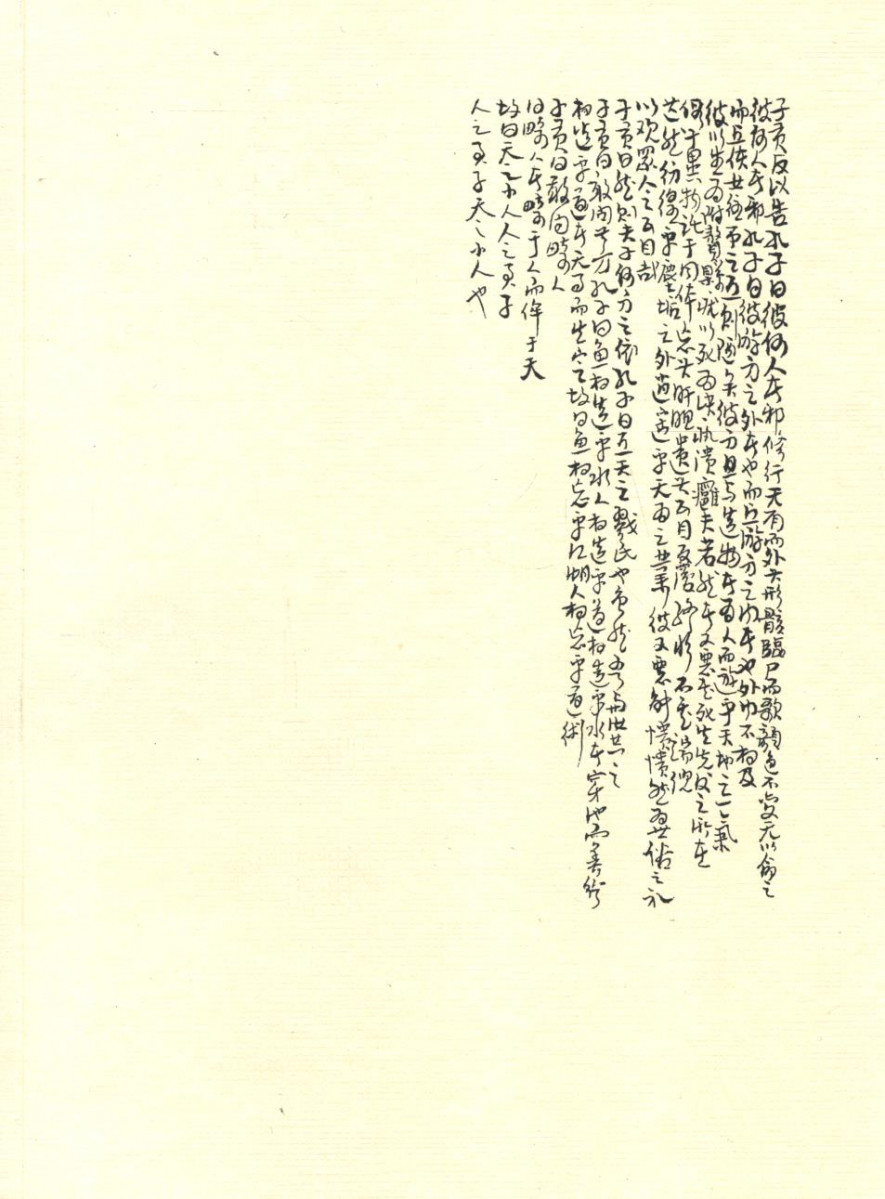 子贡反以告孔子曰彼何人者邪修行无有而外其形骸臨尸而歌顏色不变无以命之
彼何人者邪孔子曰彼游方之外者也而丘游方之内者也外内不相及
而丘使女往吊之丘则陋矣彼方且与造物者为人而遊乎天地之一氣
彼以生为附贅縣疣以死为决溃癰夫若然者又恶知死生先後之所在
假于異物托于同体忘其肝胆遗其耳目反覆终始不知端倪
芒然彷徨乎塵垢之外逍遥乎无为之業彼又恶能憒憒然为世俗之礼
以观眾人之耳目哉
子贡曰然则夫子何方之依孔子曰丘天之戮民也虽然吾与汝共之
子贡曰敢问其方孔子曰鱼相造乎水人相造乎道相造乎水者穿池而养给
相造乎道者无事而生定故曰鱼相忘乎江湖人相忘乎道術
子贡曰敢问畸人
曰畸人者畸于人而侔于天
故曰天之小人人之君子
人之君子天之小人也